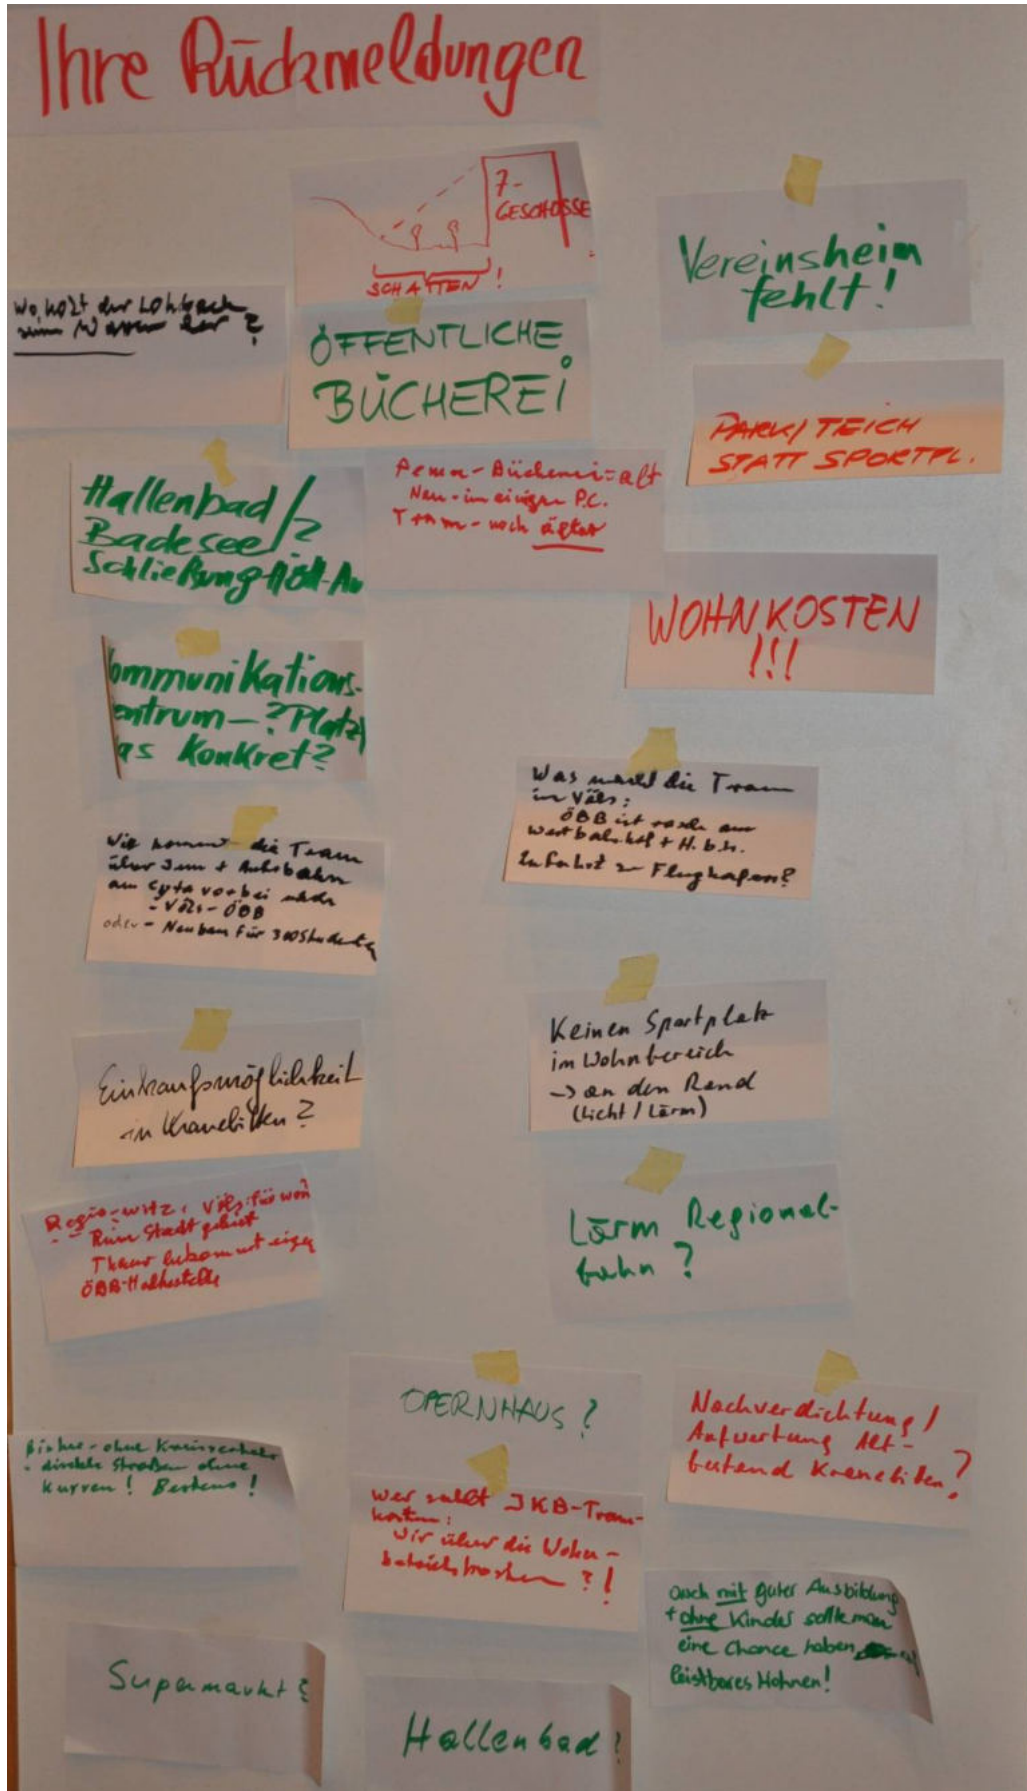 Ihre Rückmeldungen
7-
GESCHOSSE
SCHATTEN!
Vereinsheim
fehlt!
Wo holt der Lohbach
sein Wasser her?
ÖFFENTLICHE
BÜCHEREI
PARK/TEICH
STATT SPORTPL.
Hallenbad/
Badesee/?
Schließung Höll-Au
Pema-Bücherei=alt
Neu-in einigen P.C.
Tram-noch älter
WOHNKOSTEN
!!!
ommunikations-
entrum-?Platz)
as Konkret?
Was macht die Tram
in Völs:
ÖBB ist rasch am
Westbahnhof + H.b.h.
Zufahrt zu Flughafen?
Wie kommt die Tram
über Inn + Autobahn
am Cyta vorbei
- Völs-ÖBB
oder - Neubau für 300 Studenten
Keinen Sportplatz
im Wohnbereich
-> an den Rand
(Licht/Lärm)
Einkaufsmöglichkeit
in Kranebitten?
Regio-witz, Völs:für wen
Rum Stadtgebiet
Thaur bekommt eigen
ÖBB-Haltestelle
Lärm Regional-
bahn?
OPERNHAUS?
Nachverdichtung/
Aufwertung Alt-
bestand Kranebitten?
Bisher-ohne Kreisverkehr
- direkte Straßen ohne
Kurven! Bestens!
Wer zahlt IKB-Tram-
kosten:
Wir über die Wohn-
betriebskosten?!
auch mit guter Ausbildung
+ ohne Kinder sollte man
eine Chance haben auf
leistbares Wohnen!
Supermarkt?
Hallenbad?